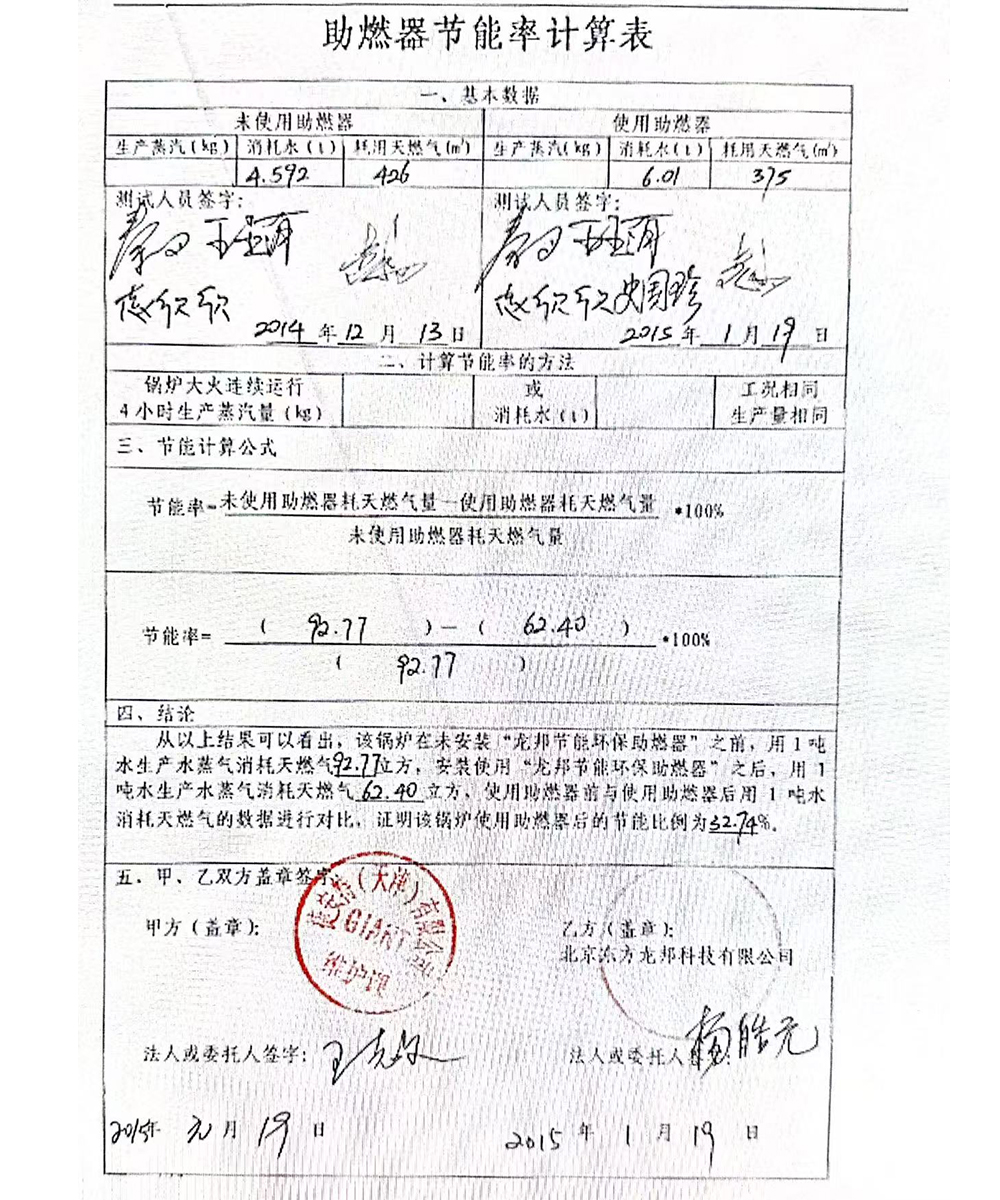 助燃器节能率计算表
一、基本数据
未使用助燃器 使用助燃器
生产蒸汽(kg) 消耗水(t) 耗用天燃气(m³) 生产蒸汽(kg) 消耗水(t) 耗用天燃气(m³)
4.592 426 6.01 375
测试人员签字: 测试人员签字:
2014年12月13日 2015年1月19日
二、计算节能率的方法
锅炉大火连续运行 或 工况相同
4小时生产蒸汽量(kg) 消耗水(t) 生产量相同
三、节能计算公式
节能率=未使用助燃器耗天燃气量—使用助燃器耗天燃气量 *100%
未使用助燃器耗天燃气量
节能率= ( 92.77 ) — ( 62.40 ) *100%
( 92.77 )
四、结论
从以上结果可以看出,该锅炉在未安装“龙邦节能环保助燃器”之前,用1吨
水生产水蒸气消耗天燃气92.77立方,安装使用“龙邦节能环保助燃器”之后,用1
吨水生产水蒸气消耗天燃气62.40立方,使用助燃器前与使用助燃器后用1吨水
消耗天燃气的数据进行对比,证明该锅炉使用助燃器后的节能比例为32.74%。
五、甲、乙双方盖章签字
(天津)有限公司
GIANT
维护课
甲方(盖章): 乙方(盖章):
北京东方龙邦科技有限公司
法人或委托人签字: 法人或委托人签字: 杨皓元
2015年元月19日 2015年1月19日